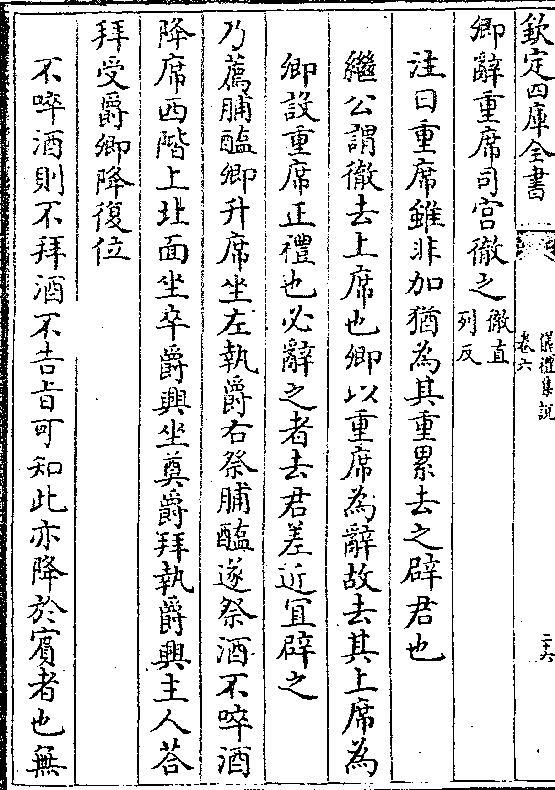 欽定四庫全書
儀禮集說
卷六
二十六
卿辭重席司宮徹之徹直
列反
注曰重席雖非加猶為其重累去之辟君也
繼公謂徹去上席也卿以重席為辭故去其上席為
卿設重席正禮也必辭之者去君差近宜辟之
乃薦脯醢卿升席坐左執爵右祭脯醢遂祭酒不啐酒
降席西階上北面坐卒爵興坐奠爵拜執爵興主人荅
拜受爵卿降復位
不啐酒則不拜酒不告旨可知此亦降於賓者也無